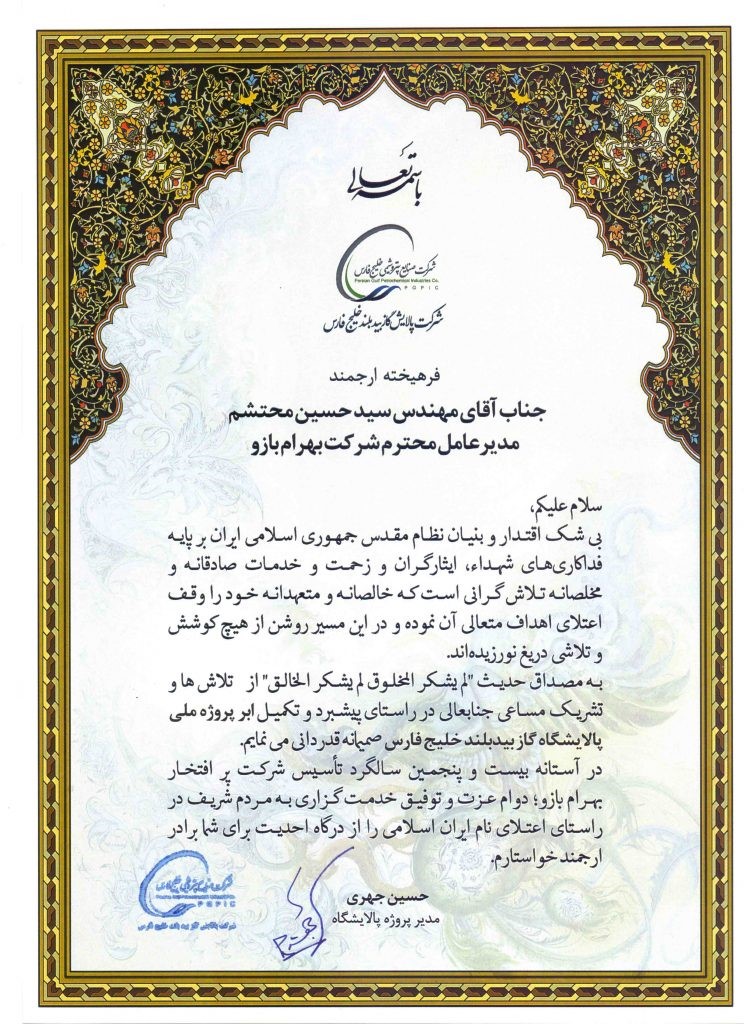 باسمه تعالی
شرکت صنایع پتروشیمی خلیج فارس
Persian Gulf Petrochemical Industries Co.
PGPIC
شرکت پالایش گاز بیدبلند خلیج فارس
فرهیخته ارجمند
جناب آقای مهندس سید حسین محتشم
مدیرعامل محترم شرکت بهرام بازو
سلام علیکم،
بی شک اقتدار و بنیان نظام مقدس جمهوری اسلامی ایران بر پایه
فداکاری‌های شهداء، ایثارگران و زحمت و خدمات صادقانه و
مخلصانه تلاش گرانی است که خالصانه و متعهدانه خود را وقف
اعتلای اهداف متعالی آن نموده و در این مسیر روشن از هیچ کوشش
و تلاشی دریغ نورزیده‌اند.
به مصداق حدیث "لم یشکر المخلوق لم یشکر الخالق" از تلاش ها و
تشریک مساعی جنابعالی در راستای پیشبرد و تکمیل ابر پروژه ملی
پالایشگاه گاز بیدبلند خلیج فارس صمیمانه قدردانی می نمایم.
در آستانه بیست و پنجمین سالگرد تأسیس شرکت پر افتخار
بهرام بازو؛ دوام عزت و توفیق خدمت گزاری به مردم شریف در
راستای اعتلای نام ایران اسلامی را از درگاه احدیت برای شما برادر
ارجمند خواستارم.
حسین جهری
مدیر پروژه پالایشگاه
شرکت صنایع پتروشیمی خلیج فارس
PGPIC
شرکت پالایش گاز بید بلند خلیج فارس